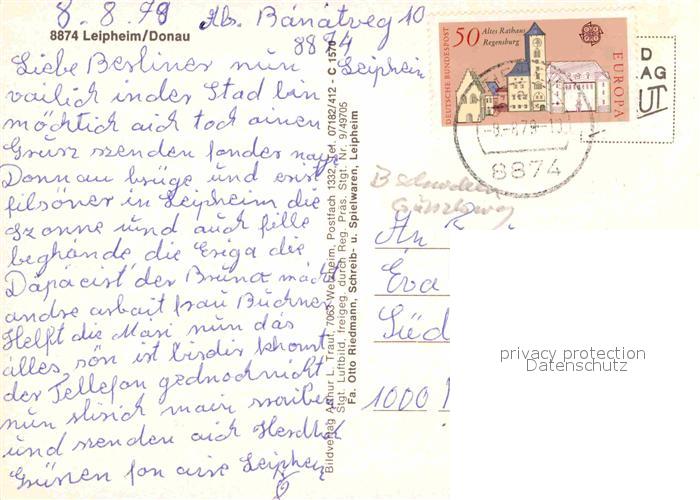 8.8.79 Abs. Banatweg 10
8874 Leipheim/Donau
8874
Leipheim
Liebe Berliner nun
vailich in der Stad bin
möchtich aich toch ainen
Grüsz szenden fon der naye
Donnau brüge und erist
filsöner in Leipheim die
Szonne und auch fille
beghände die
der
andre arbait frau Buchner
Helft die Mari nun das
alles, sön ist bisdir khomst
der Tellefon gednochnicht
nun slisich main sraiben
und szenden aich Herdlich
Grüsen fon aire Leipheim
Bildverlag Arthur L. Traut, 7063 Welzheim, Postfach 1332, Telef. 07182/412 - C 1570
Stgt. Luftbild, freigeg. durch Reg. Präs. Stgt. Nr. 9/49705
Fa. Otto Riedmann, Schreib- u. Spielwaren, Leipheim
DEUTSCHE BUNDESPOST
50
Altes Rathaus
Regensburg
EUROPA
D
AG
UT
-8.-8.79-
8874
An
Eva
Süd
1000
privacy protection
Datenschutz